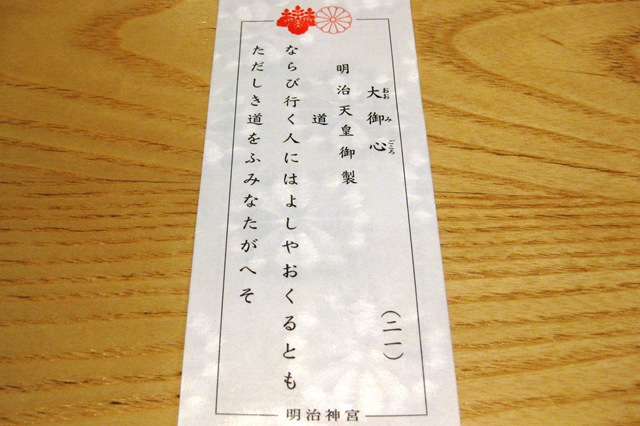 大御心
おおみごころ
(二一)
明治天皇御製
道
ならび行く人にはよしやおくるとも
ただしき道をふみなたがへそ
明治神宮